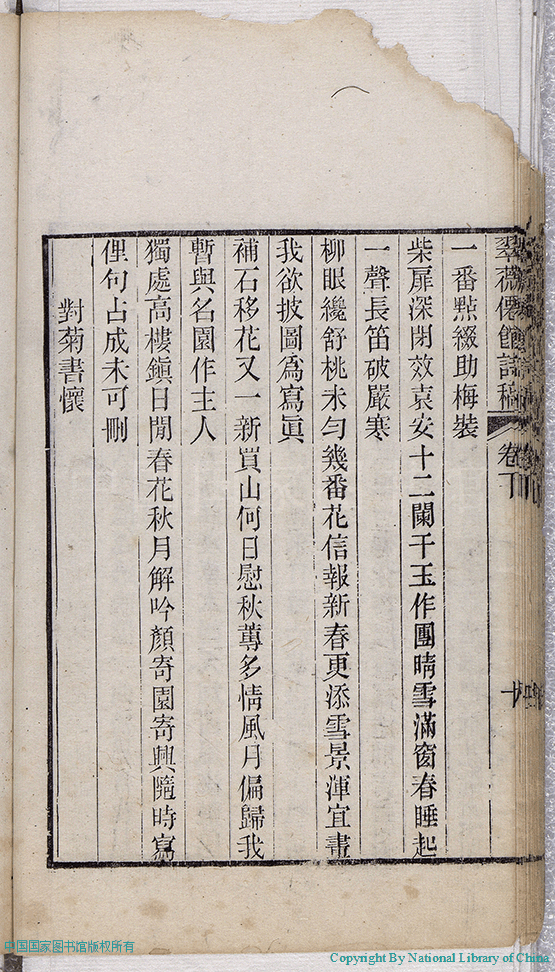 翠薇僊館詩稿 卷下
一番點綴助梅裝
柴扉深閉效袁安十二闌干玉作團晴雪滿窗春睡起
一聲長笛破嚴寒
柳眼纔舒桃未勻幾番花信報新春更添雪景渾宜畫
我欲披圖爲寫眞
補石移花又一新買山何日慰秋蓴多情風月偏歸我
暫與名園作主人
獨處高樓鎭日閒春花秋月解吟顏寄園寄興隨時寫
俚句占成未可刪
對菊書懷
中国国家图书馆版权所有
Copyright By National Library of China